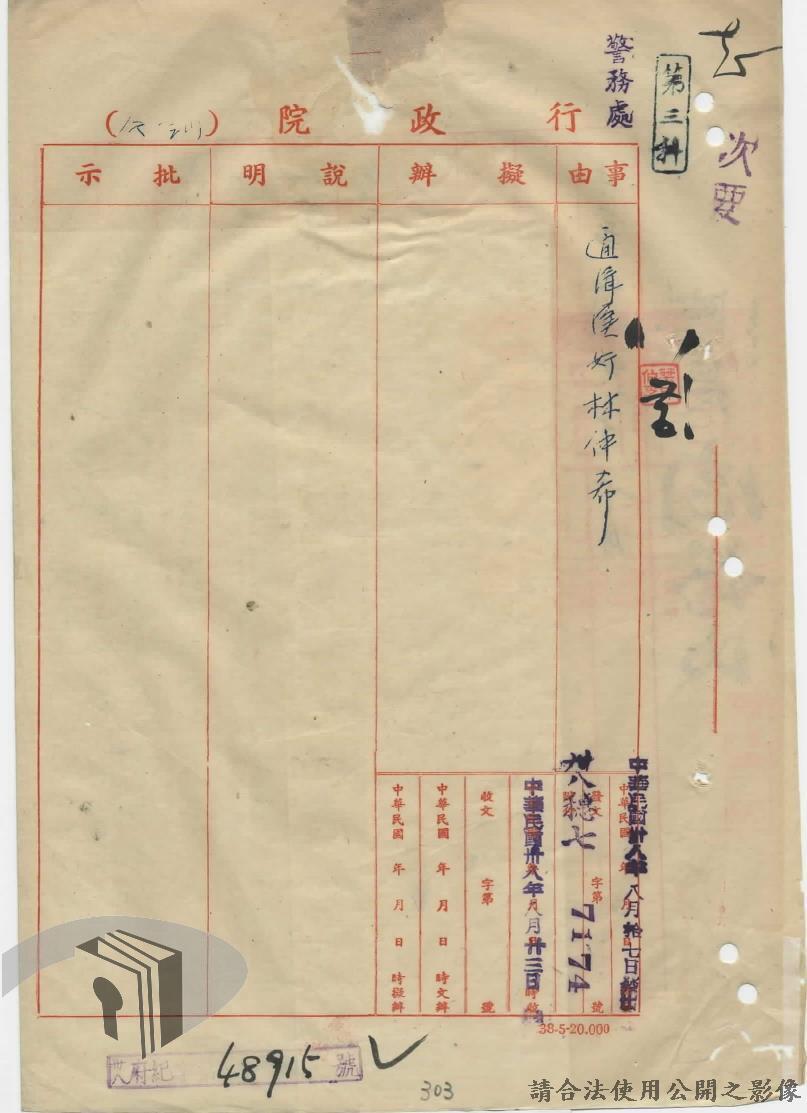 次要
第三科
警務處
行政院（ ）
事由
擬辦
說明
批示
通緝漢奸林仲希
中華民國卅八年八月拾七日
發文
卅八穗七
字第
7174
號
中華民國卅八年八月廿三日
時收
收文
字第
號
中華民國 年 月 日 時交辦
中華民國 年 月 日 時擬辦
38-5-20.000
48915
號
303
請合法使用公開之影像